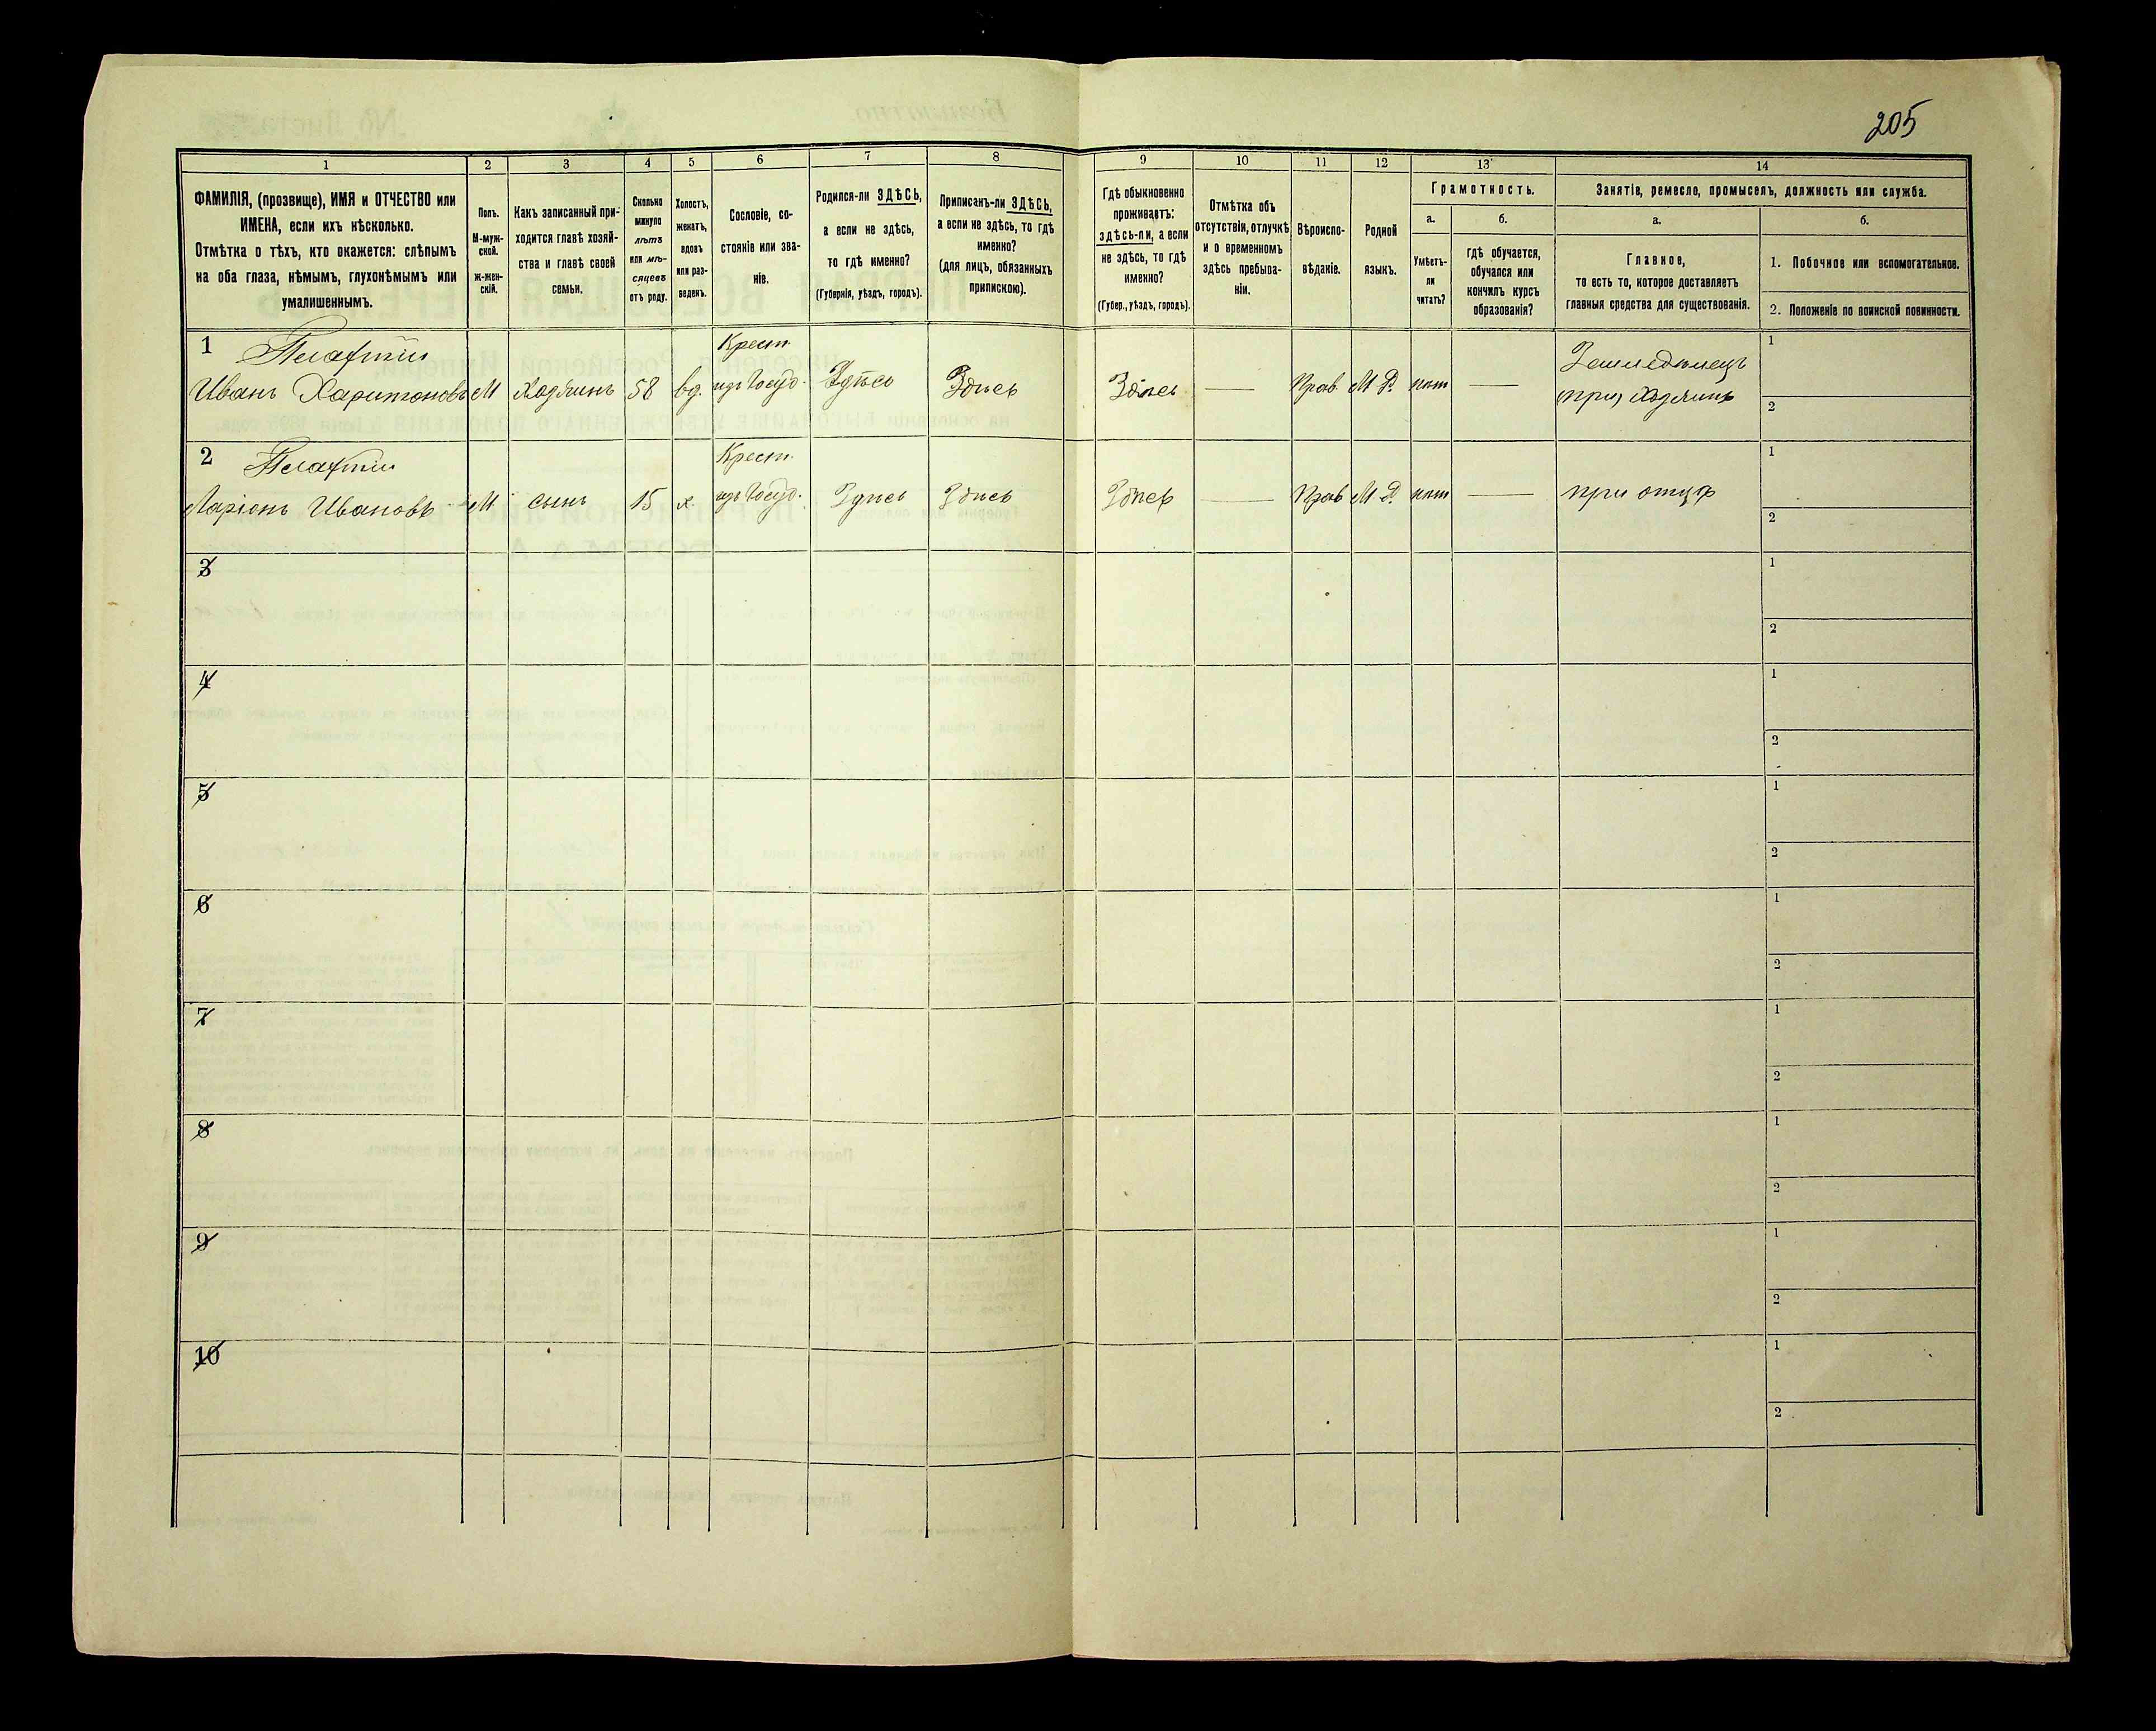 205
1 2 3 4 5 6 7 8 9 10 11 12 13 14
ФАМИЛІЯ, (прозвище), ИМЯ и ОТЧЕСТВО или
ИМЕНА, если ихъ нѣсколько.
Отмѣтка о тѣхъ, кто окажется: слѣпымъ
на оба глаза, нѣмымъ, глухонѣмымъ или
умалишеннымъ.
Полъ.
М-муж-
ской.
Ж-жен-
скій.
Какъ записанный при-
ходится главѣ хозяй-
ства и главѣ своей
семьи.
Сколько
минуло
лѣтъ
или мѣ-
сяцевъ
отъ роду.
Холостъ,
женатъ,
вдовъ
или раз-
веденъ.
Сословіе, со-
стояніе или зва-
ніе.
Родился-ли ЗДѢСЬ,
а если не здѣсь,
то гдѣ именно?
(Губернія, уѣздъ, городъ).
Приписанъ-ли ЗДѢСЬ,
а если не здѣсь, то гдѣ
именно?
(для лицъ, обязанныхъ
припискою).
Гдѣ обыкновенно
проживаетъ:
здѣсь-ли, а если
не здѣсь, то гдѣ
именно?
(Губер., уѣздъ, городъ).
Отмѣтка объ
отсутствіи, отлучкѣ
и о временномъ
здѣсь пребыва-
ніи.
Вѣроиспо-
вѣданіе.
Родной
языкъ.
Грамотность.
а.
Умѣетъ-
ли
читать?
б.
гдѣ обучается,
обучался или
кончилъ курсъ
образованія?
Занятіе, ремесло, промыселъ, должность или служба.
а.
Главное,
то есть то, которое доставляетъ
главныя средства для существованія.
б.
1. Побочное или вспомогательное.
2. Положеніе по воинской повинности.
1
Иванъ Харитоновъ М Хозяинъ 58 вд. Крест. изъ Госуд. Здѣсь Здѣсь Здѣсь — Прав. М. Р. нѣт — Земледѣлецъ
при, Хозяинъ
1
2
2
Ларіонъ Ивановъ М сынъ 15 х. Крест. изъ Госуд. Здѣсь Здѣсь Здѣсь — Прав М. Р. нѣт — при отцѣ
1
2
3
1
2
4
1
2
5
1
2
6
1
2
7
1
2
8
1
2
9
1
2
10
1
2